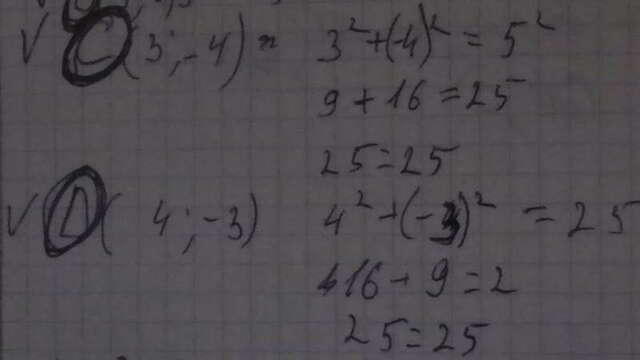 V C (3; -4) = 3² + (-4)² = 5²
9 + 16 = 25
25 = 25
V D ( 4; -3) 4² + (-3)² = 25
16 + 9 = 2
25 = 25